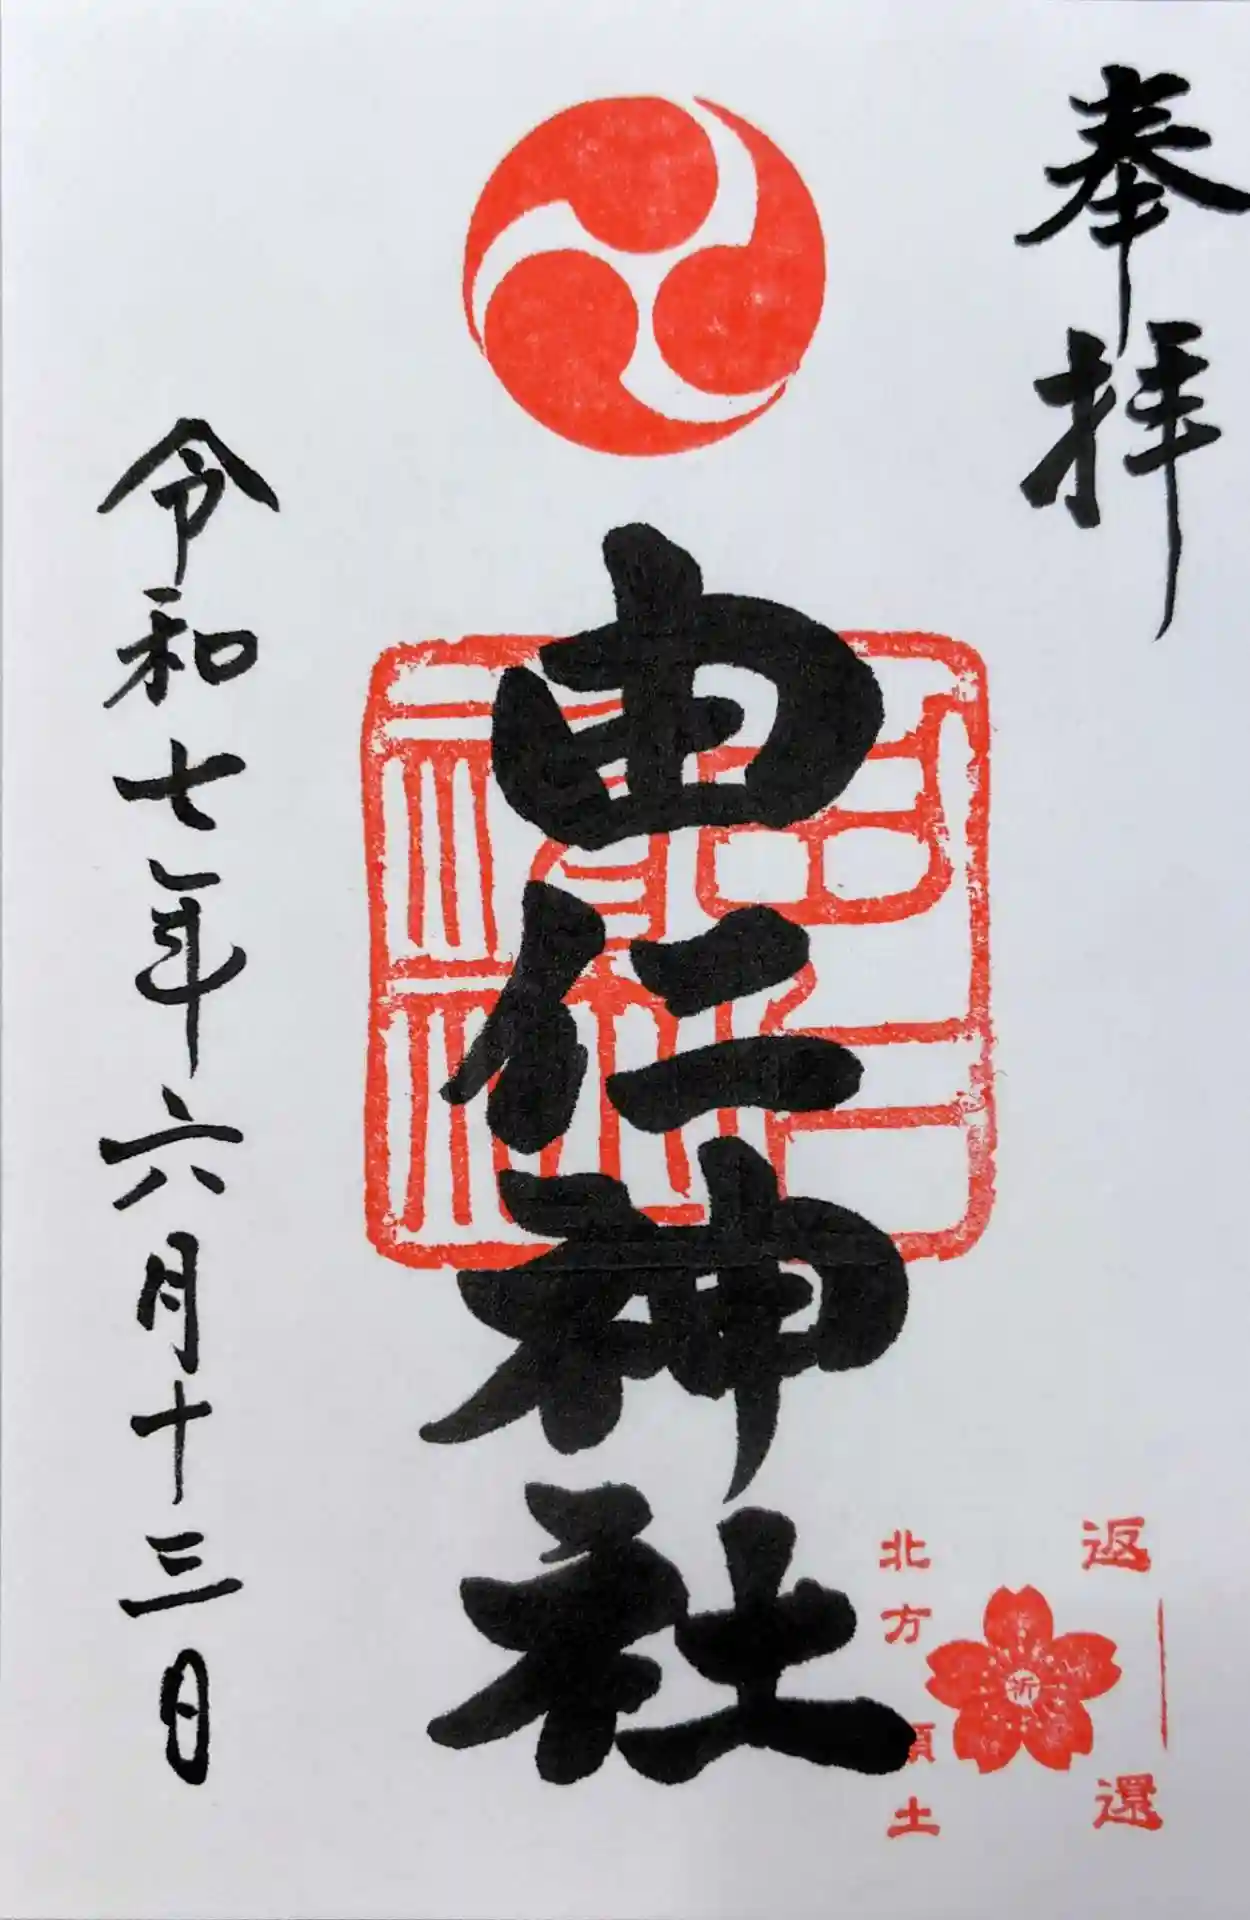 奉拝
由仁神社
令和七年六月十三日
返還
祈
北方領土